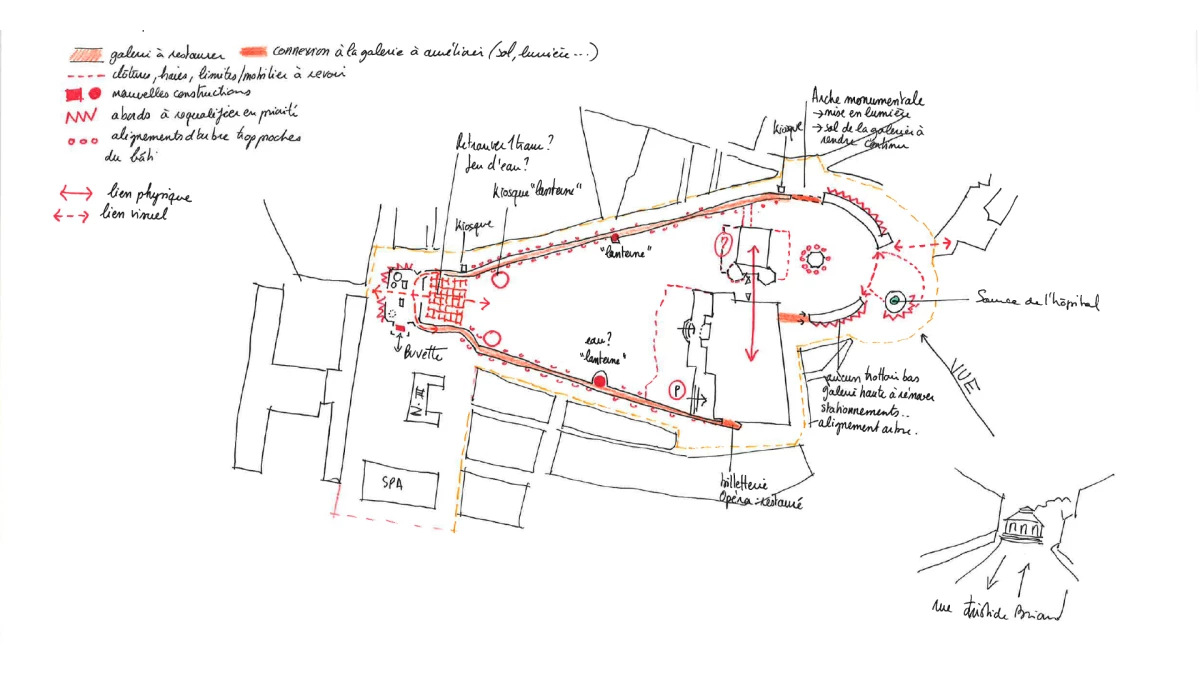 galerie à restaurer
connexion à la galerie à améliorer (sol, lumière...)
clôtures, haies, limites/mobilier à revoir
nouvelles constructions
abords à requalifier en priorité
alignements d'arbre trop proches
du bâti
lien physique
lien visuel
Retrouver 1 trame?
Jeu d'eau?
Kiosque "lanterne"
Kiosque
Kiosque
Arche monumentale
→ mise en lumière
→ sol de la galerie à
rendre continu
"lanterne"
?
Source de l'hôpital
eau?
"lanterne"
Buvette
N. III
P
VUE
- aucun trottoir bas
galerie haute à rénover
stationnements..
- alignement arbre.
SPA
billetterie
Opéra: restauré
rue Aristide Briand